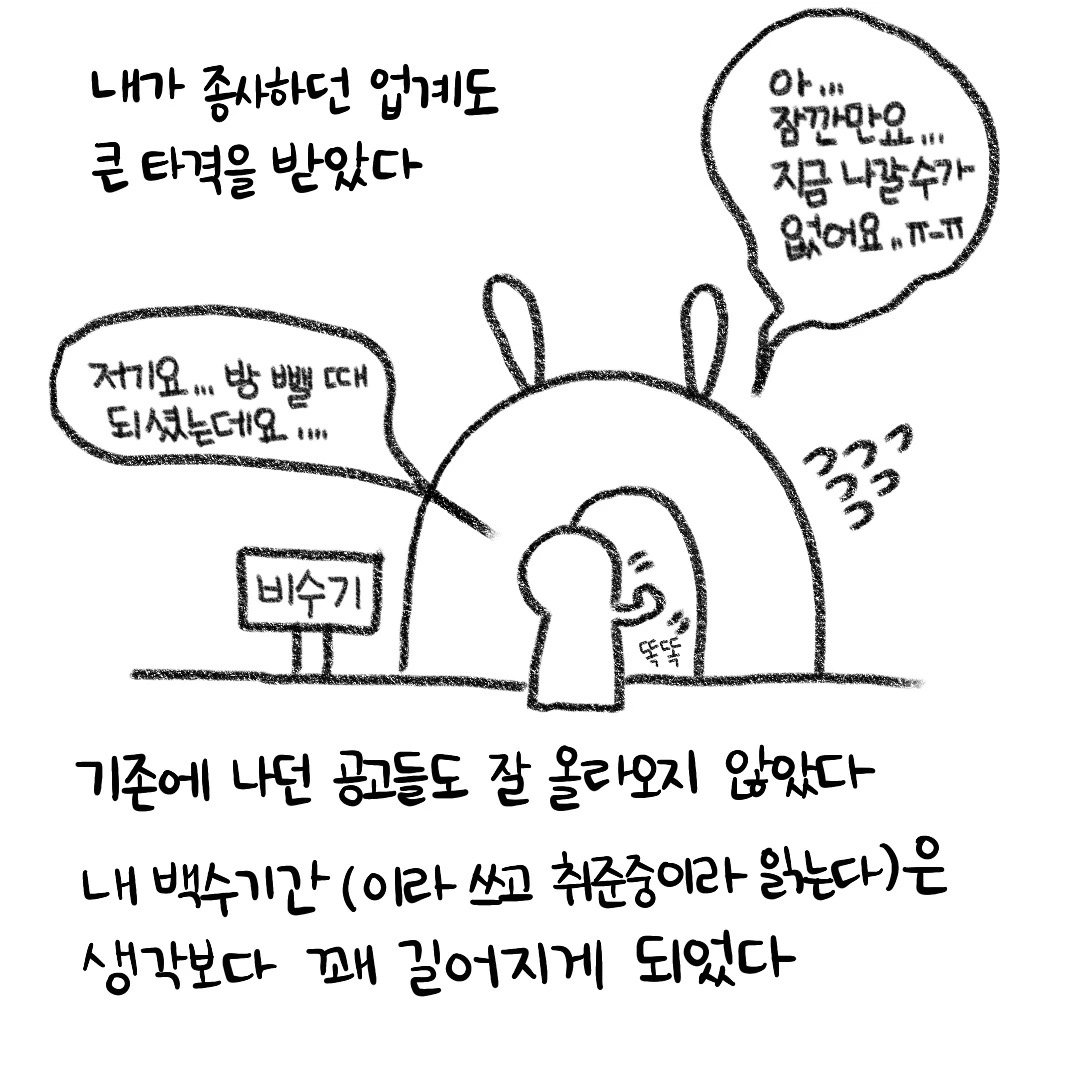 내가 종사하던 업계도
큰 타격을 받았다
아...
잠깐만요...
지금 나갈수가
없어요..ㅠ-ㅠ
저기요... 방 뺄 때
되셨는데요....
비수기
똑똑
기존에 나던 공고들도 잘 올라오지 않았다
내 백수기간(이라 쓰고 취준중이라 읽는다)은
생각보다 꽤 길어지게 되었다